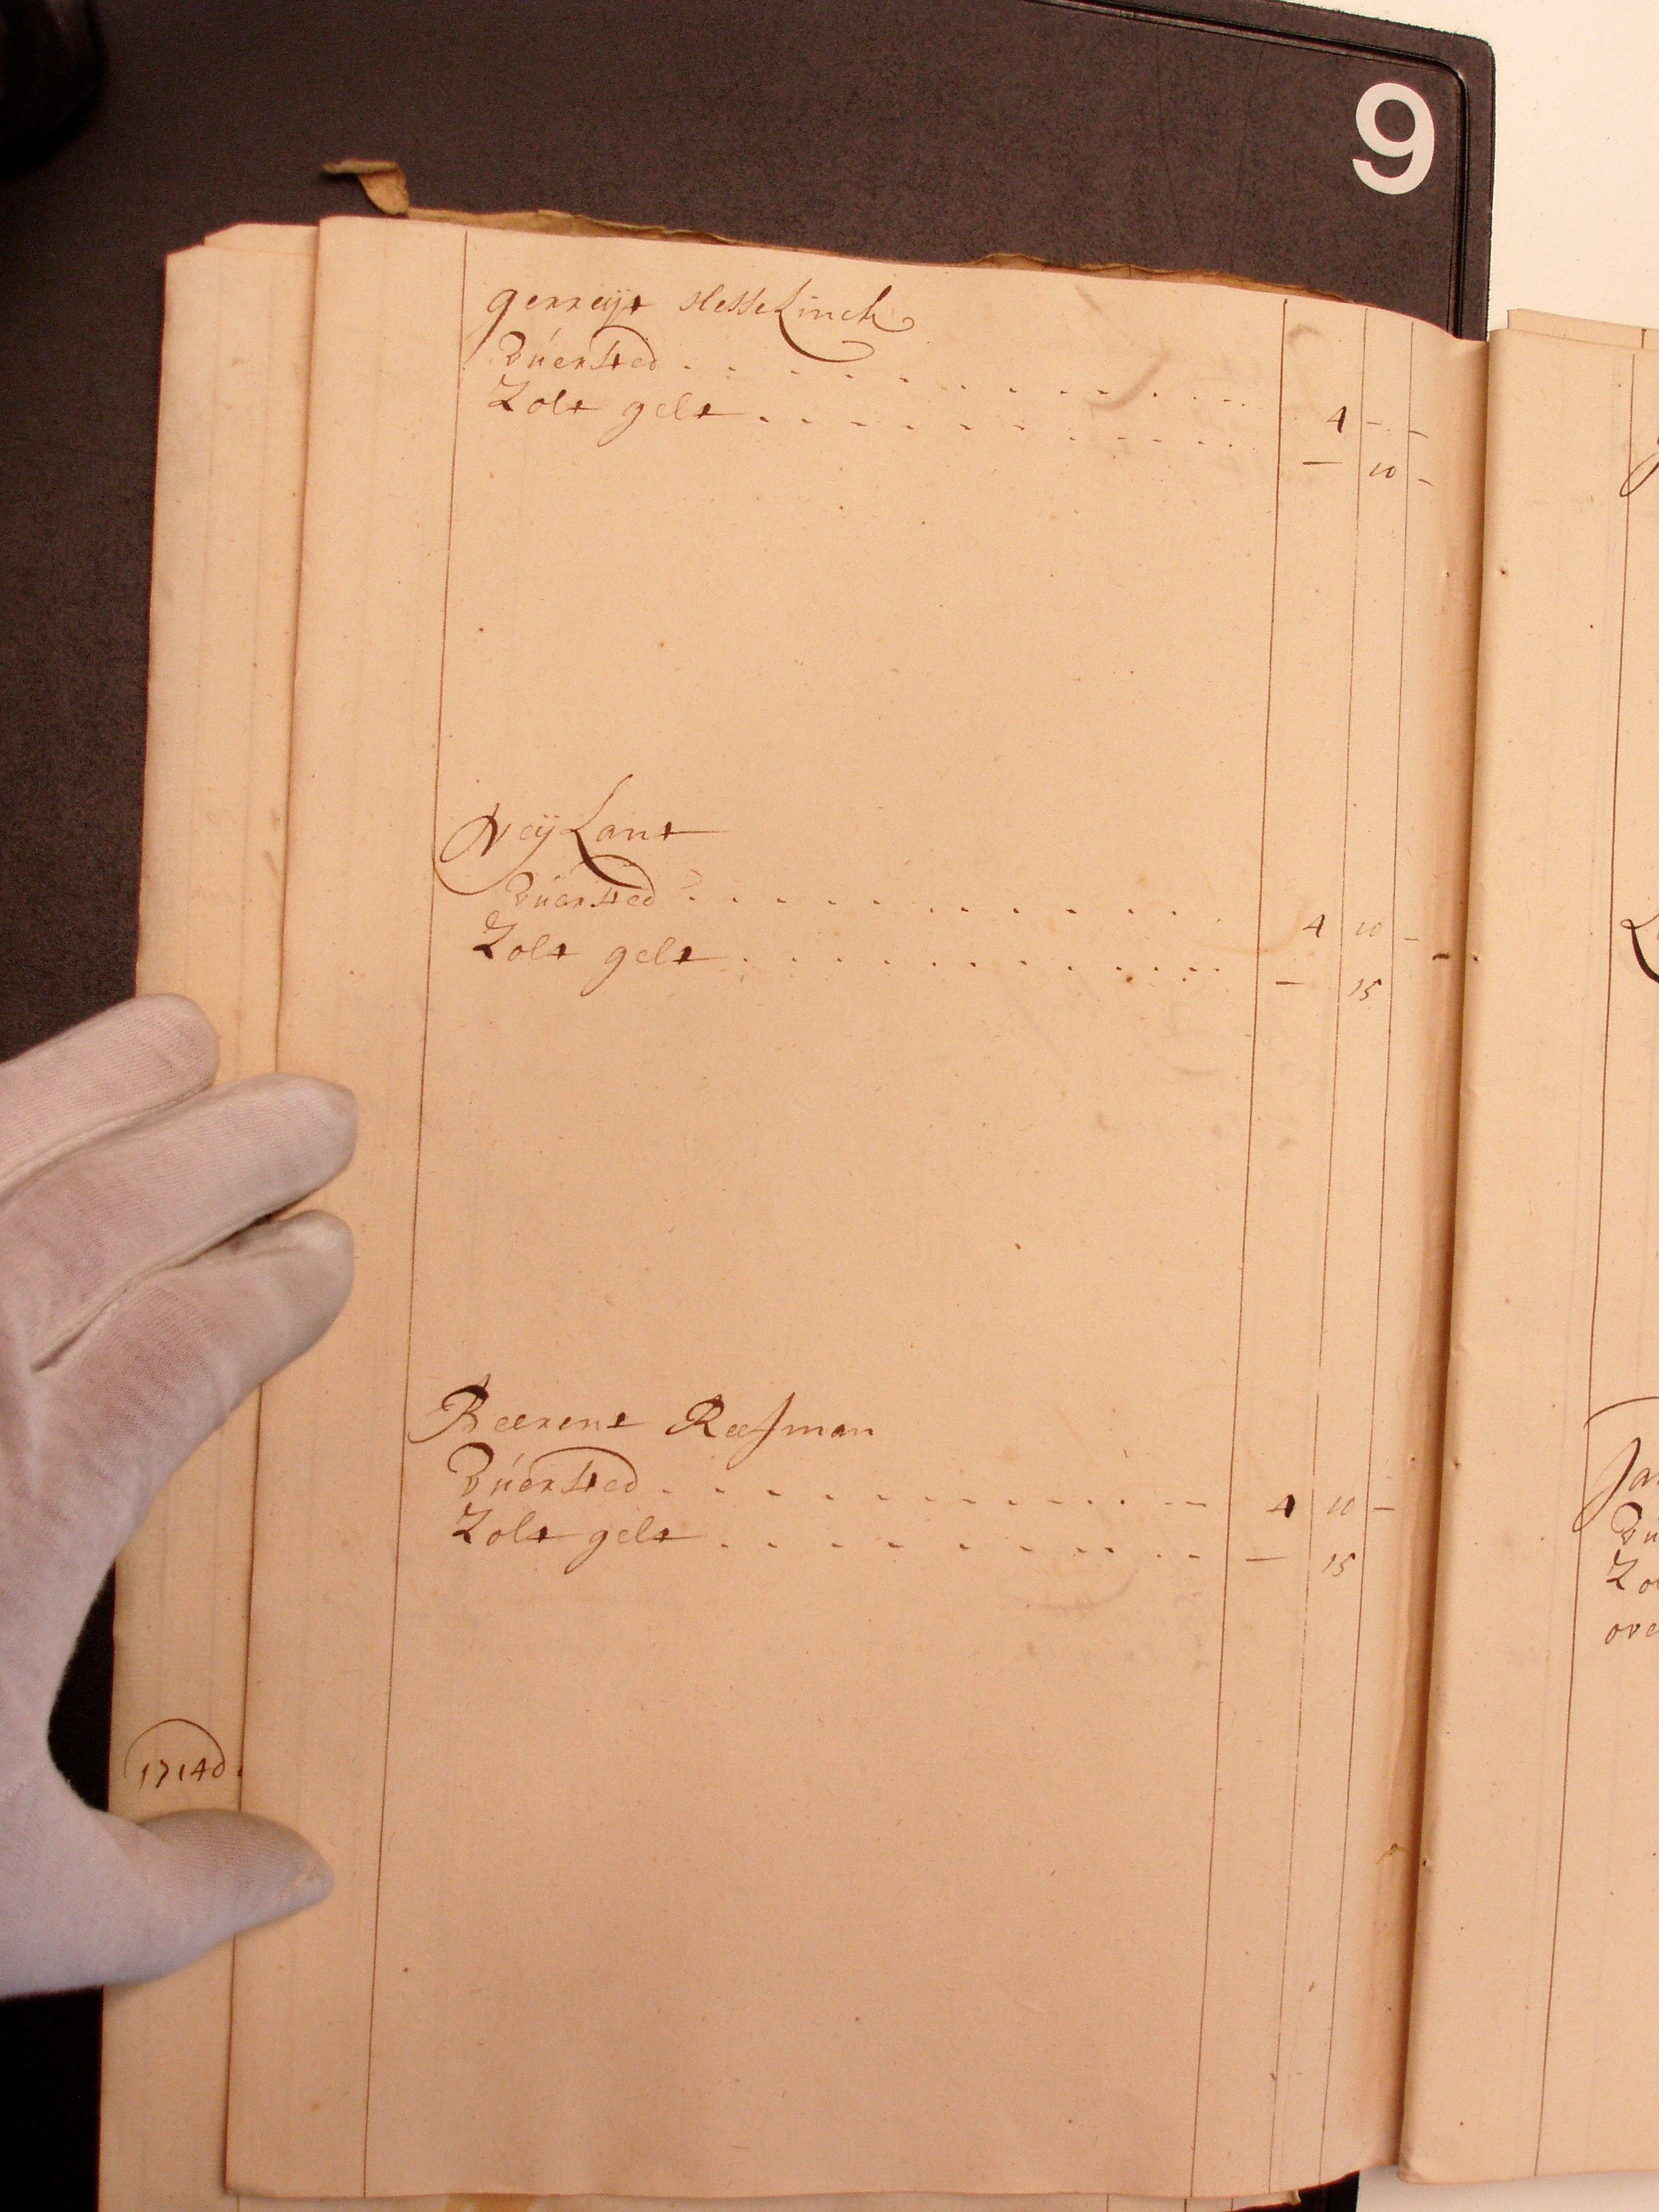 9
gerreijt Hesselinck
Vúersted . . . . . . . . . . . . 4 - -
Zolt gelt . . . . . . . . . . . . - 10 -
Neij Lant
Vúersted . . . . . . . . . . . . 4 10 -
Zolt gelt . . . . . . . . . . . . - 15
Beerent Reesman
Vúersted . . . . . . . . . . . . 4 10 -
Zolt gelt . . . . . . . . . . . . - 15
Jan
Vú
Zol
ove